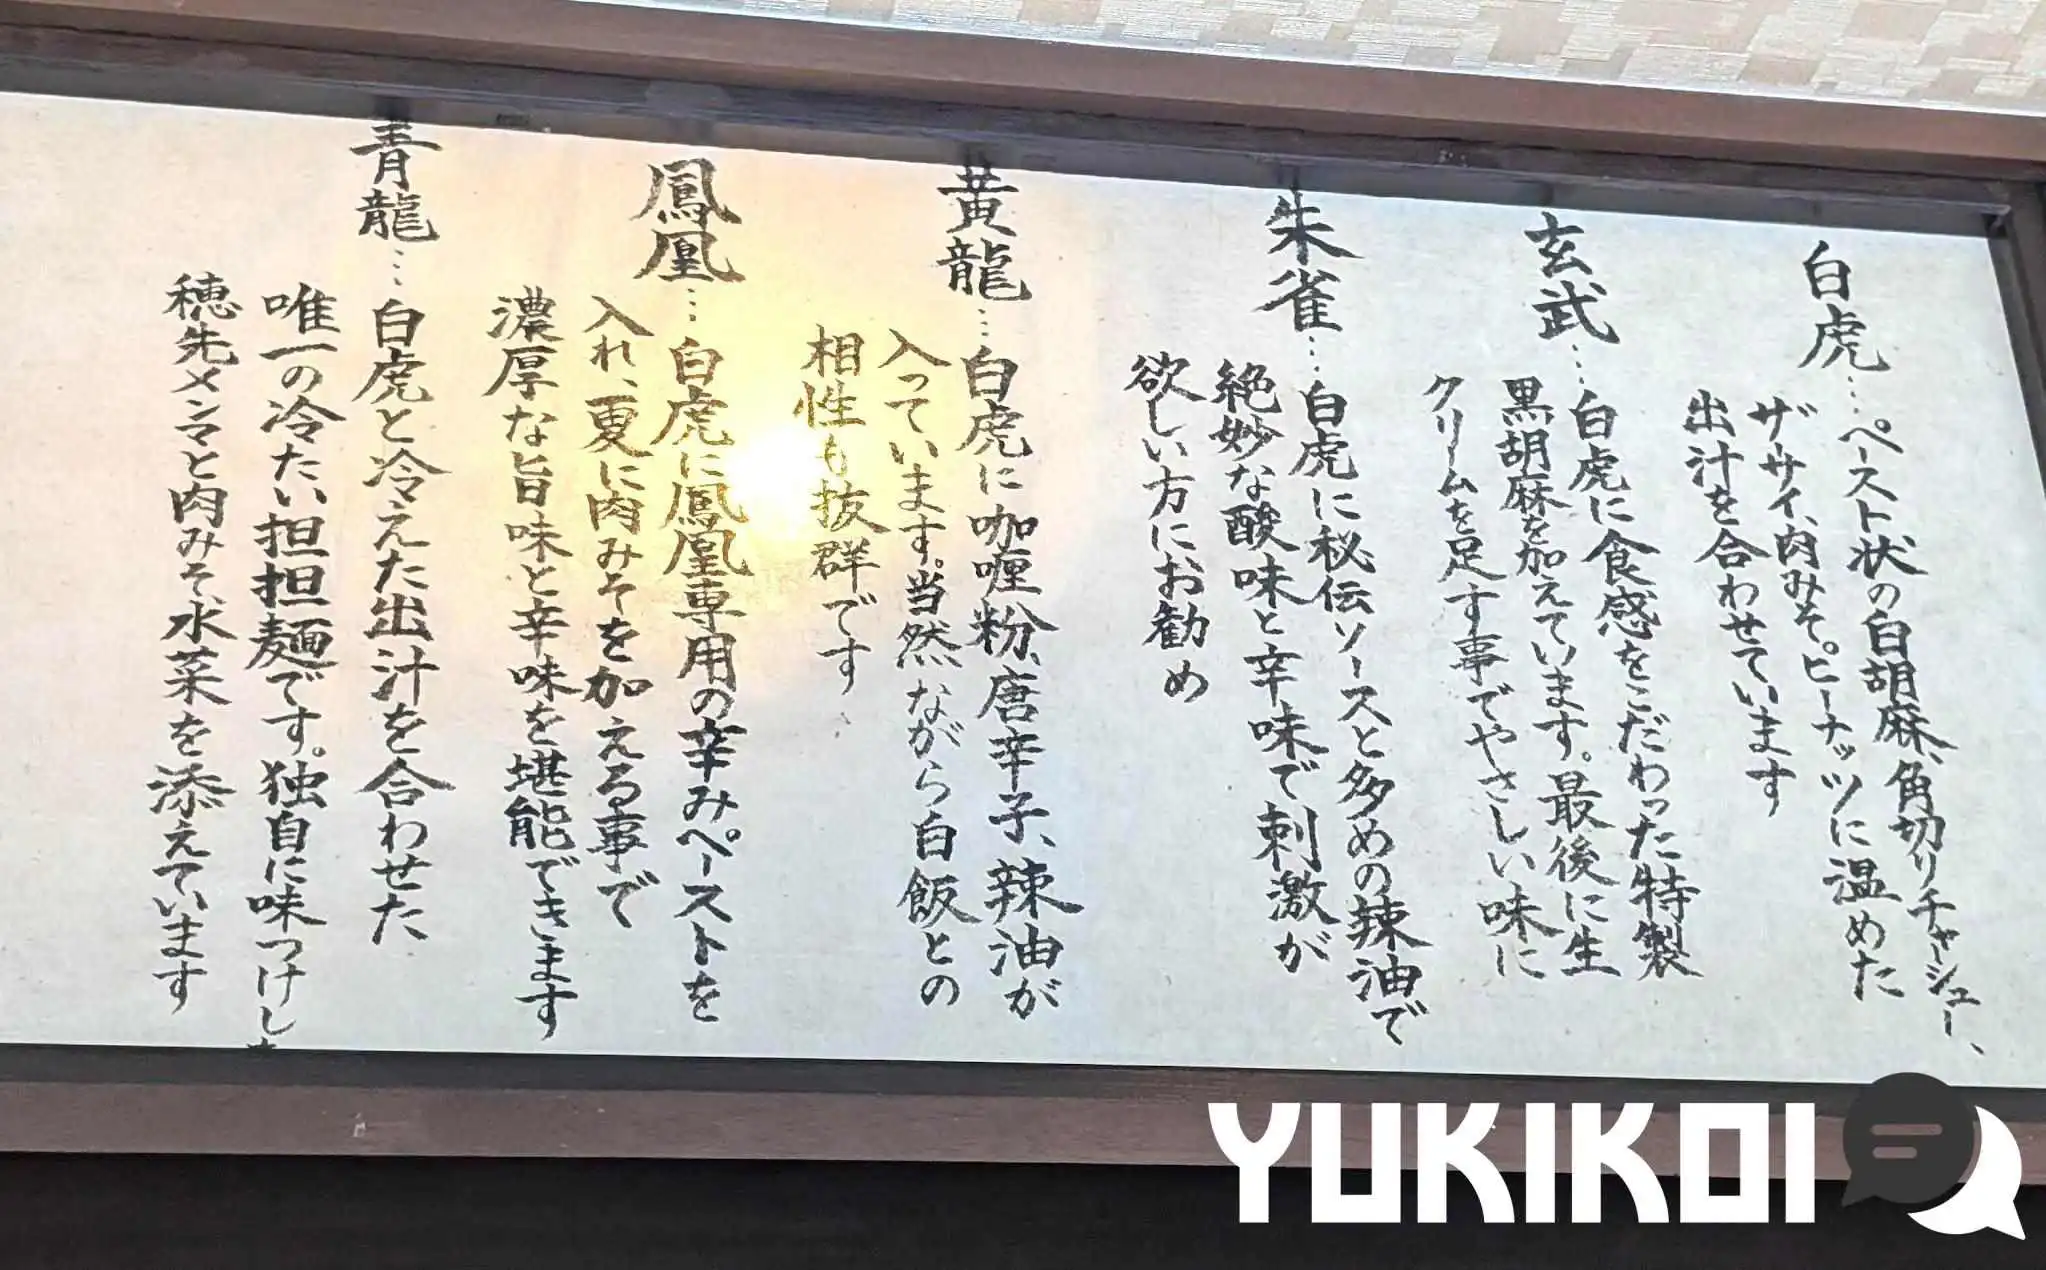 白虎…ペースト状の白胡麻、角切りチャーシュー、
ザーサイ、肉みそ。ピーナッツに温めた
出汁を合わせています
玄武…白虎に食感をこだわった特製
黒胡麻を加えています。最後に生
クリームを足す事でやさしい味に
朱雀…白虎に秘伝ソースと多めの辣油で
絶妙な酸味と辛味で刺激が
欲しい方にお勧め
黄龍…白虎に咖喱粉、唐辛子、辣油が
入っています。当然ながら白飯との
相性も抜群です
鳳凰…白虎に鳳凰専用の辛みペーストを
入れ、更に肉みそを加える事で
濃厚な旨味と辛味を堪能できます
青龍…白虎と冷えた出汁を合わせた
唯一の冷たい担担麺です。独自に味つけし
穂先メンマと肉みそ、水菜を添えています
YUKIKOI